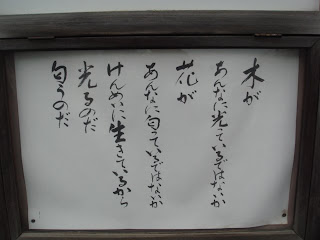 木が
あんなに光っているではないか
花が
あんなに匂っているではないか
けんめいに生きているから
光るのだ
匂うのだ